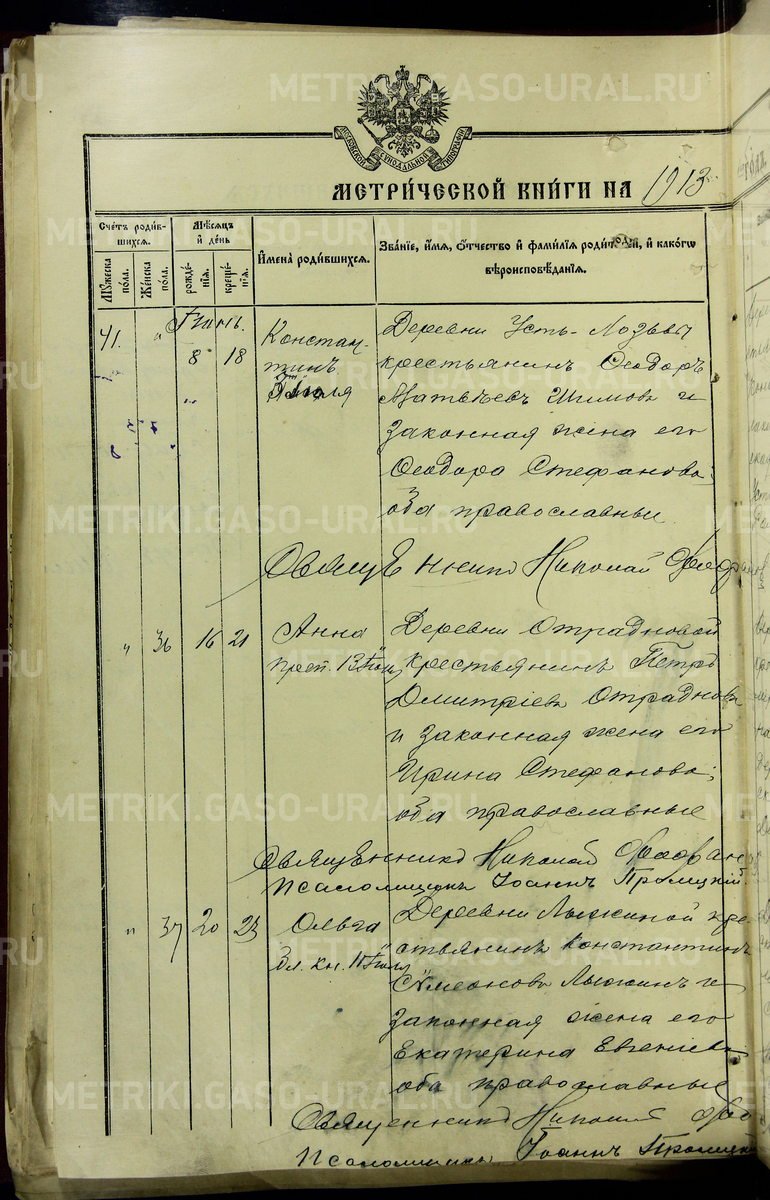 METRIKI.GASO-URAL.RU
МОСКОВСКОЙ СѴНОДАЛЬНОЙ ТИПОГРАФІИ
МЕТРИ́ЧЕСКОЙ КНИ́ГИ НА 1913
Сче́тъ роди́вшихсѧ.
Мꙋ́жеска по́ла.
Же́нска по́ла.
Мѣ́сѧцъ и҆ де́нь
рожде́нїѧ.
креще́нїѧ.
И҆мена̀ роди́вшихсѧ.
Зва́нїе, и҆́мѧ, ѻ҆́тчество и҆ фами́лїѧ роди́телей, и҆ како́гѡ
вѣроисповѣ́данїѧ.
Іюнь.
41. " 8 18
Констан-
тинъ
Іюля
Деревни Усть-Лозьвы
крестьянинъ Ѳеодоръ
Матвѣевъ Шимовъ и
законная жена его
Ѳеодора Стефанова;
оба православные
Священникъ Николай
" 36 16 21
Анна
преп. 13 Іюня
Деревни Отрадновой
крестьянинъ Петръ
Димитріевъ Отрадновъ
и законная жена его
Ирина Стефанова;
оба православные
Священникъ Николай
Псаломщикъ Іоаннъ Троицкій.
" 37 20 23
Ольга
бл. кн. 11 Іюля
Деревни Лыжиной кре-
стьянинъ Константинъ
Сѵмеоновъ Лыжинъ и
законная жена его
Екатерина Евгеніева
оба православные
Священникъ Николай
Псаломщикъ Іоаннъ Троицкій